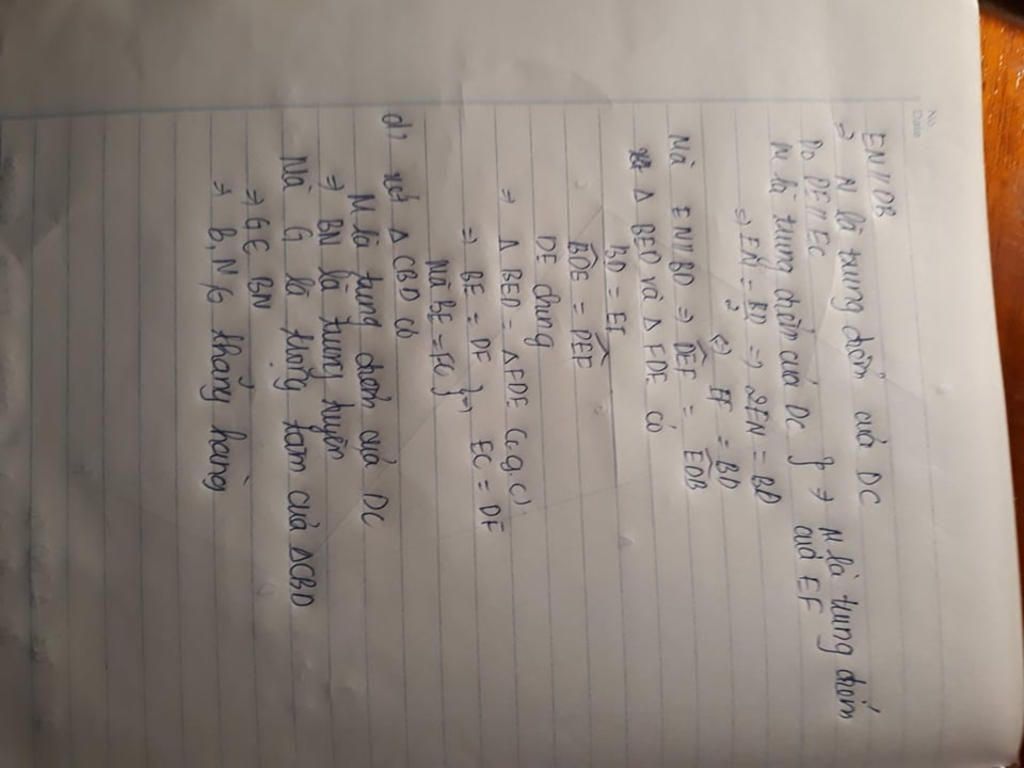 No.
Date
EN//DB
=> N là trung điểm của DC
Do DF//EC
N là trung điểm của DC } => N là trung điểm của EF
=> EN = BD/2 => 2EN = BD
<=> EF = BD
Mà EN//BD => DEF = EDB
xét Δ BED và Δ FDE có
BD = EF
BDE = DEF
DE chung
=> Δ BED = Δ FDE (c.g.c)
=> BE = DF
Mà BE = EC } => EC = DF
d) xét Δ CBD có
N là trung điểm của DC
=> BN là trung tuyến
Mà G là trọng tâm của ΔCBD
=> G ∈ BN
=> B, N, G thẳng hàng